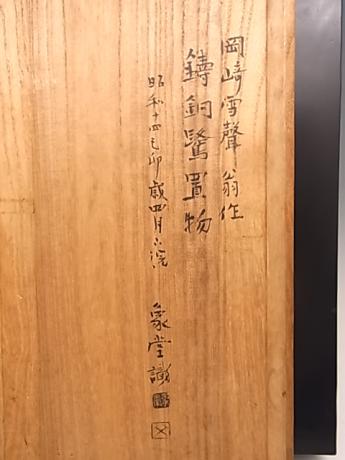 岡﨑雪聲翁作
鑄銅鷲置物
昭和十四己卯歳四月浣
象堂識